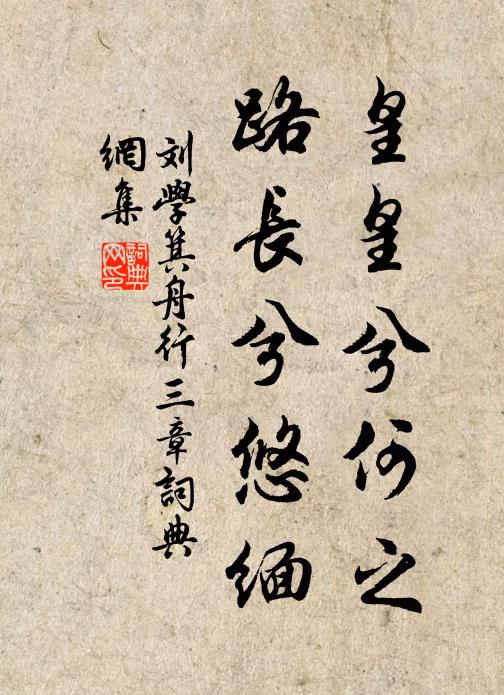 皇皇兮何之
路長兮悠緬
刘學箕舟行三章詞典
網集
詞典
网印